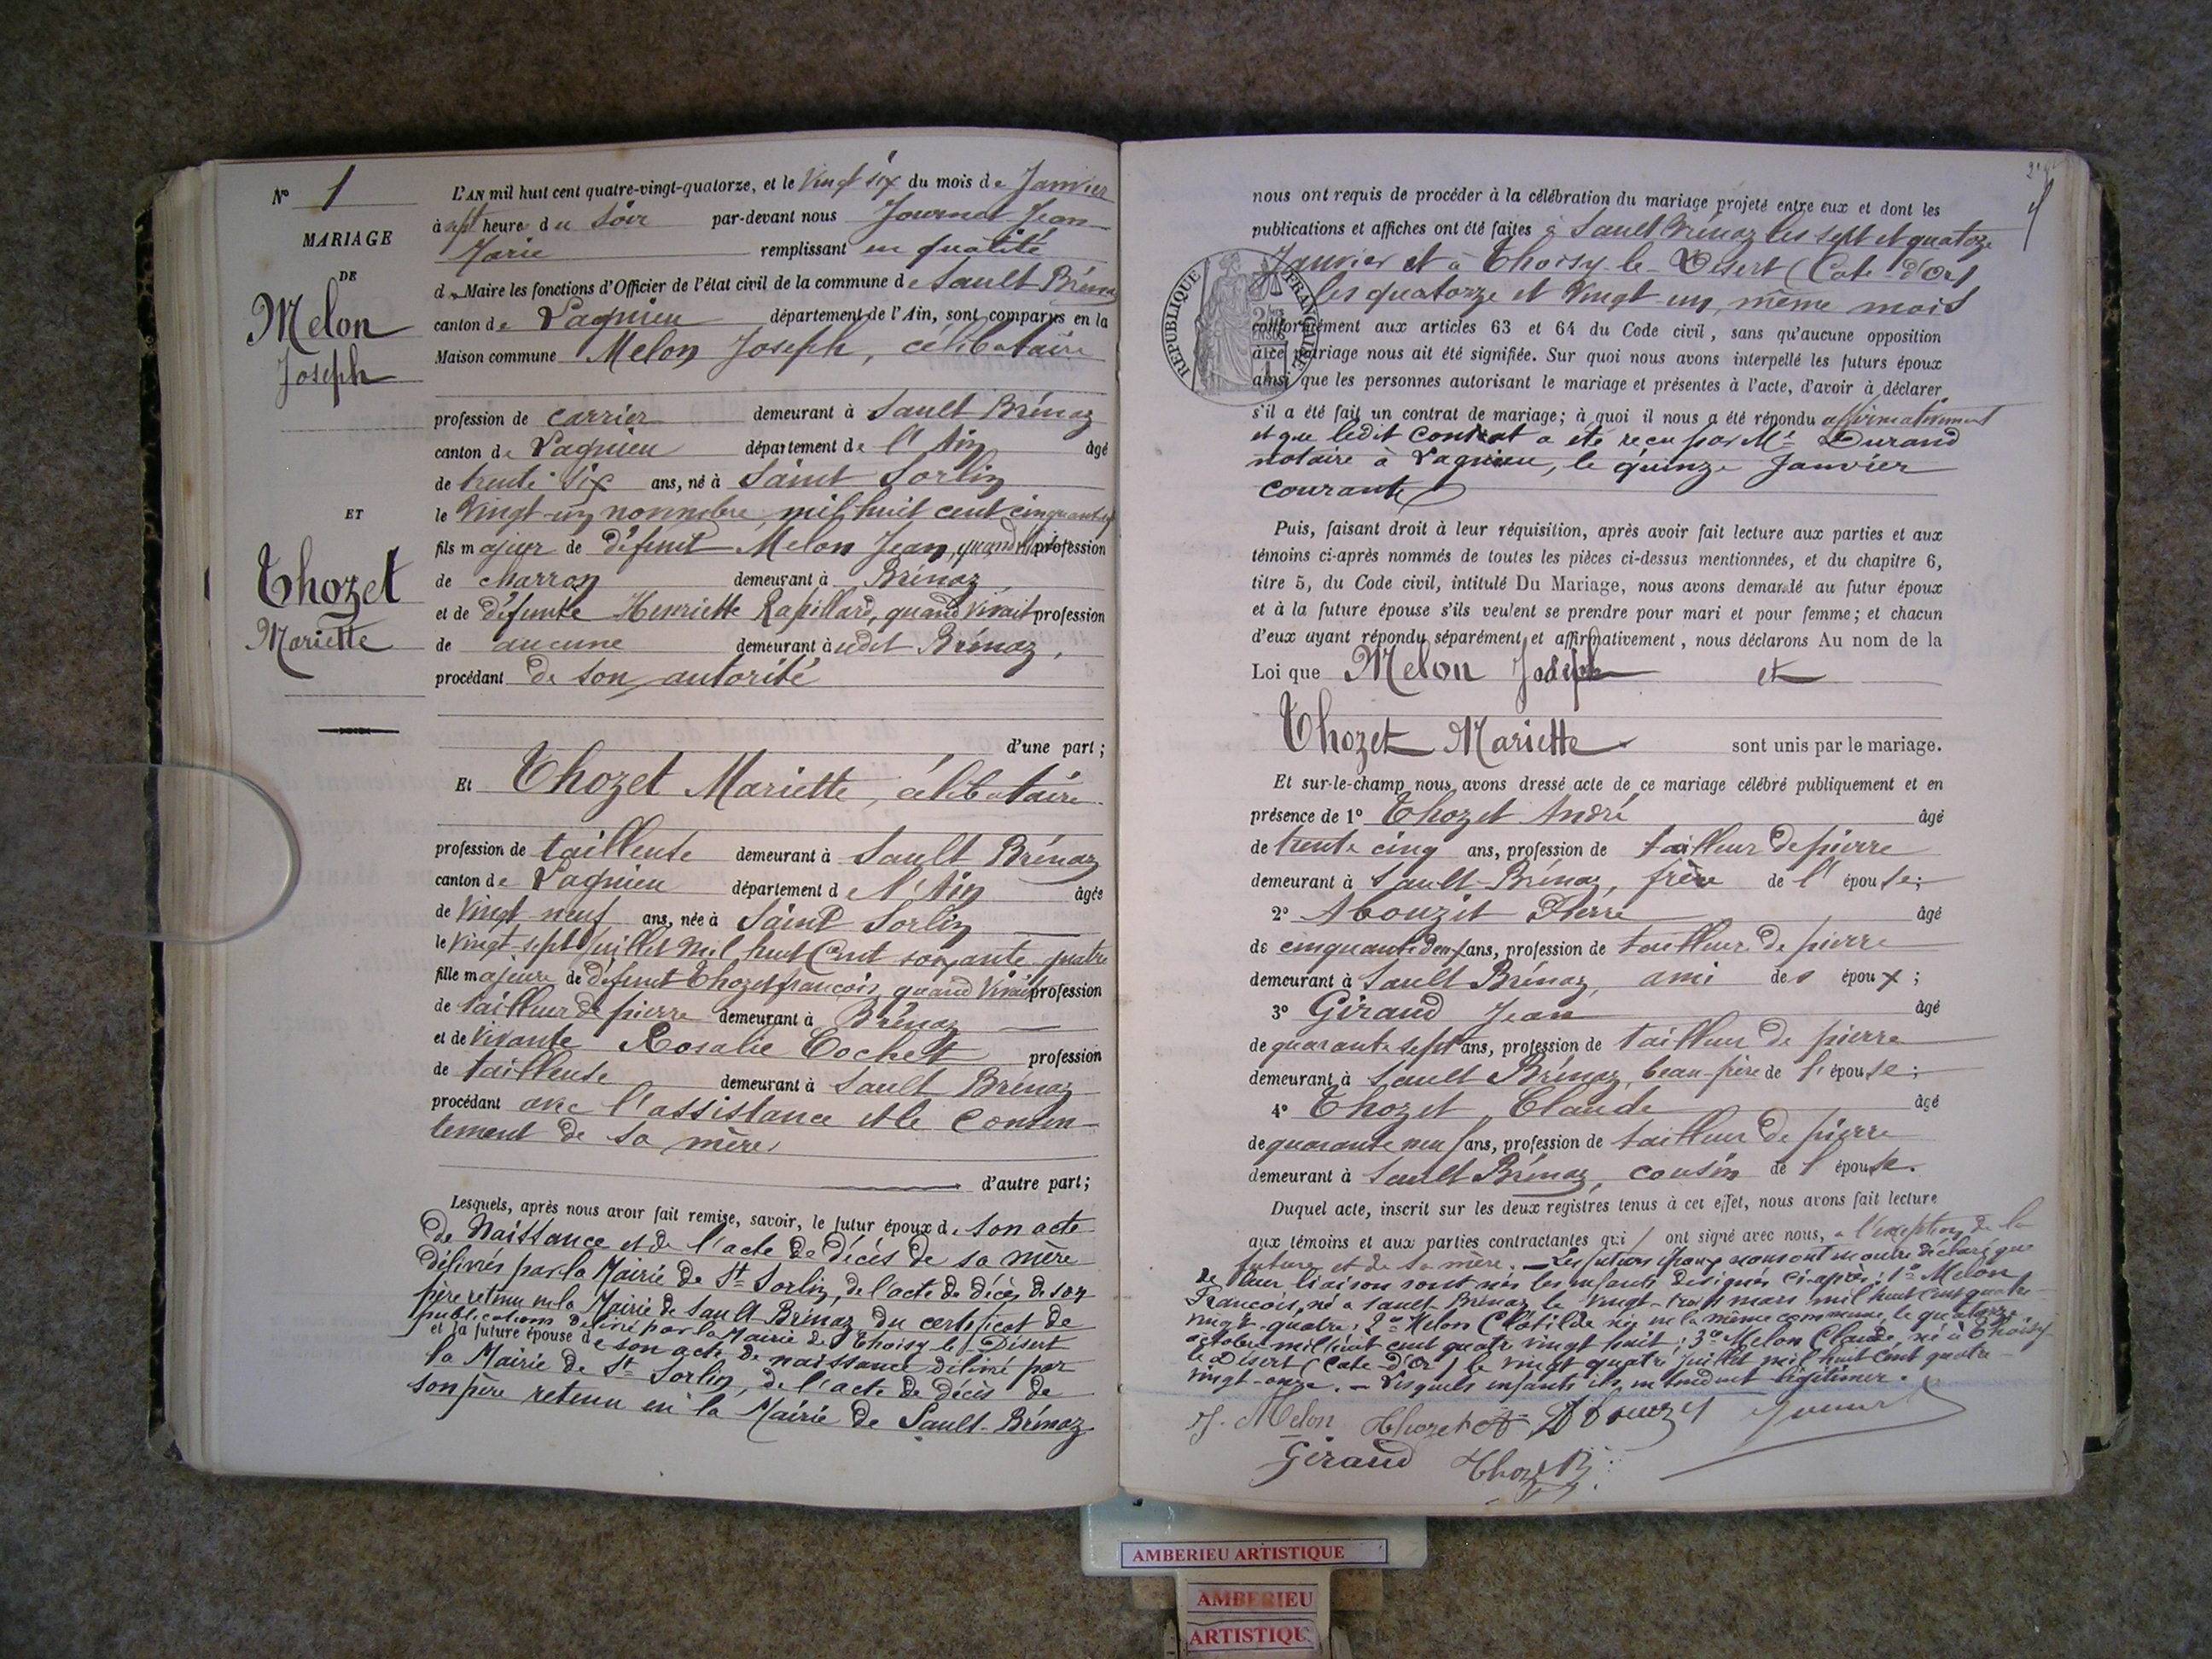 N° 1
MARIAGE
DE
Melon
Joseph
ET
Thozet
Mariette
L'AN mil huit cent quatre-vingt-quatorze, et le Vingt six du mois de Janvier
à sept heures du Soir par-devant nous Journet Jean
Marie remplissant en qualité
de Maire les fonctions d'Officier de l'état civil de la commune de Sault Brénaz
canton de Lagnieu département de l'Ain, sont comparus en la
Maison commune Melon Joseph, célibataire
profession de carrier demeurant à Sault Brénaz
canton de Lagnieu département de l'Ain âgé
de trente six ans, né à Saint Sorlin
le Vingt-un novembre, mil huit cent cinquante sept
fils majeur de défunt Melon Jean, quand vivait profession
de charron demeurant à Brénaz
et de défunte Henriette Rapillard, quand vivait profession
de aucune demeurant audit Brénaz,
procédant de son autorité
d'une part;
Et Thozet Mariette, célibataire
profession de tailleuse demeurant à Sault Brénaz
canton de Lagnieu département de l'Ain âgée
de Vingt-neuf ans, née à Saint Sorlin
le Vingt-sept Juillet mil huit Cent soixante quatre
fille majeure de défunt Thozet françois, quand vivait profession
de tailleur de pierre demeurant à Brénaz
et de vivante Rosalie Cochet profession
de tailleuse demeurant à Sault Brénaz
procédant avec l'assistance et le consen-
tement de sa mère,
d'autre part;
Lesquels, après nous avoir fait remise, savoir, le futur époux de son acte
de Naissance et de l'acte de Décès de sa mère
délivrés par la Mairie de St Sorlin, de l'acte de décès de son
père retenu en la Mairie de Sault-Brénaz, du certificat de
publications délivré par la Mairie de Thoisy-le-Désert
et la future épouse de son acte de naissance délivré par
la Mairie de St Sorlin, de l'acte de décès de
son père retenu en la Mairie de Sault-Brénaz
nous ont requis de procéder à la célébration du mariage projeté entre eux et dont les
publications et affiches ont été faites à Sault Brénaz les sept et quatorze
Janvier et à Thoisy-le-Désert (Cote d'Or)
les quatorze et vingt-un, même mois
REPUBLIQUE FRANÇAISE
conformément aux articles 63 et 64 du Code civil, sans qu'aucune opposition
à ce mariage nous ait été signifiée. Sur quoi nous avons interpellé les futurs époux
ainsi que les personnes autorisant le mariage et présentes à l'acte, d'avoir à déclarer
s'il a été fait un contrat de mariage; à quoi il nous a été répondu affirmativement
et que ledit contrat a été reçu par Me Durand
notaire à Lagnieu, le quinze Janvier
courant
Puis, faisant droit à leur réquisition, après avoir fait lecture aux parties et aux
témoins ci-après nommés de toutes les pièces ci-dessus mentionnées, et du chapitre 6,
titre 5, du Code civil, intitulé Du Mariage, nous avons demandé au futur époux
et à la future épouse s'ils veulent se prendre pour mari et pour femme; et chacun
d'eux ayant répondu séparément et affirmativement, nous déclarons Au nom de la
Loi que Melon Joseph et
Thozet Mariette sont unis par le mariage.
Et sur-le-champ nous avons dressé acte de ce mariage célébré publiquement et en
présence de 1° Thozet André âgé
de trente cinq ans, profession de tailleur de pierre
demeurant à Sault-Brénaz, frère de l'épouse;
2° Abouzit Pierre âgé
de cinquante deux ans, profession de tailleur de pierre
demeurant à Sault Brénaz, ami des époux;
3° Giraud Jean âgé
de quarante sept ans, profession de tailleur de pierre
demeurant à Sault Brénaz, beau-frère de l'épouse;
4° Thozet Claude âgé
de quarante neuf ans, profession de tailleur de pierre
demeurant à Sault Brénaz, cousin de l'épouse.
Duquel acte, inscrit sur les deux registres tenus à cet effet, nous avons fait lecture
aux témoins et aux parties contractantes qui ont signé avec nous, à l'exception de la
future et de sa mère. — Les futurs époux nous ont en outre déclaré que
de leur liaison sont nés les enfants désignés ci-après: 1° Melon
François, né à Sault-Brénaz le vingt-trois mars mil huit cent quatre
vingt-quatre; 2° Melon Clotilde née en la même commune, le quatorze
octobre mil huit cent quatre vingt huit; 3° Melon Claude, né à Thoisy
le Désert (Cote-d'Or) le vingt quatre juillet mil huit cent quatre-
vingt-onze. — Lesquels enfants ils entendent légitimer.
J. Melon Thozet A Abouzit Journet
Giraud Thozet
AMBERIEU ARTISTIQUE
AMBERIEU
ARTISTIQU